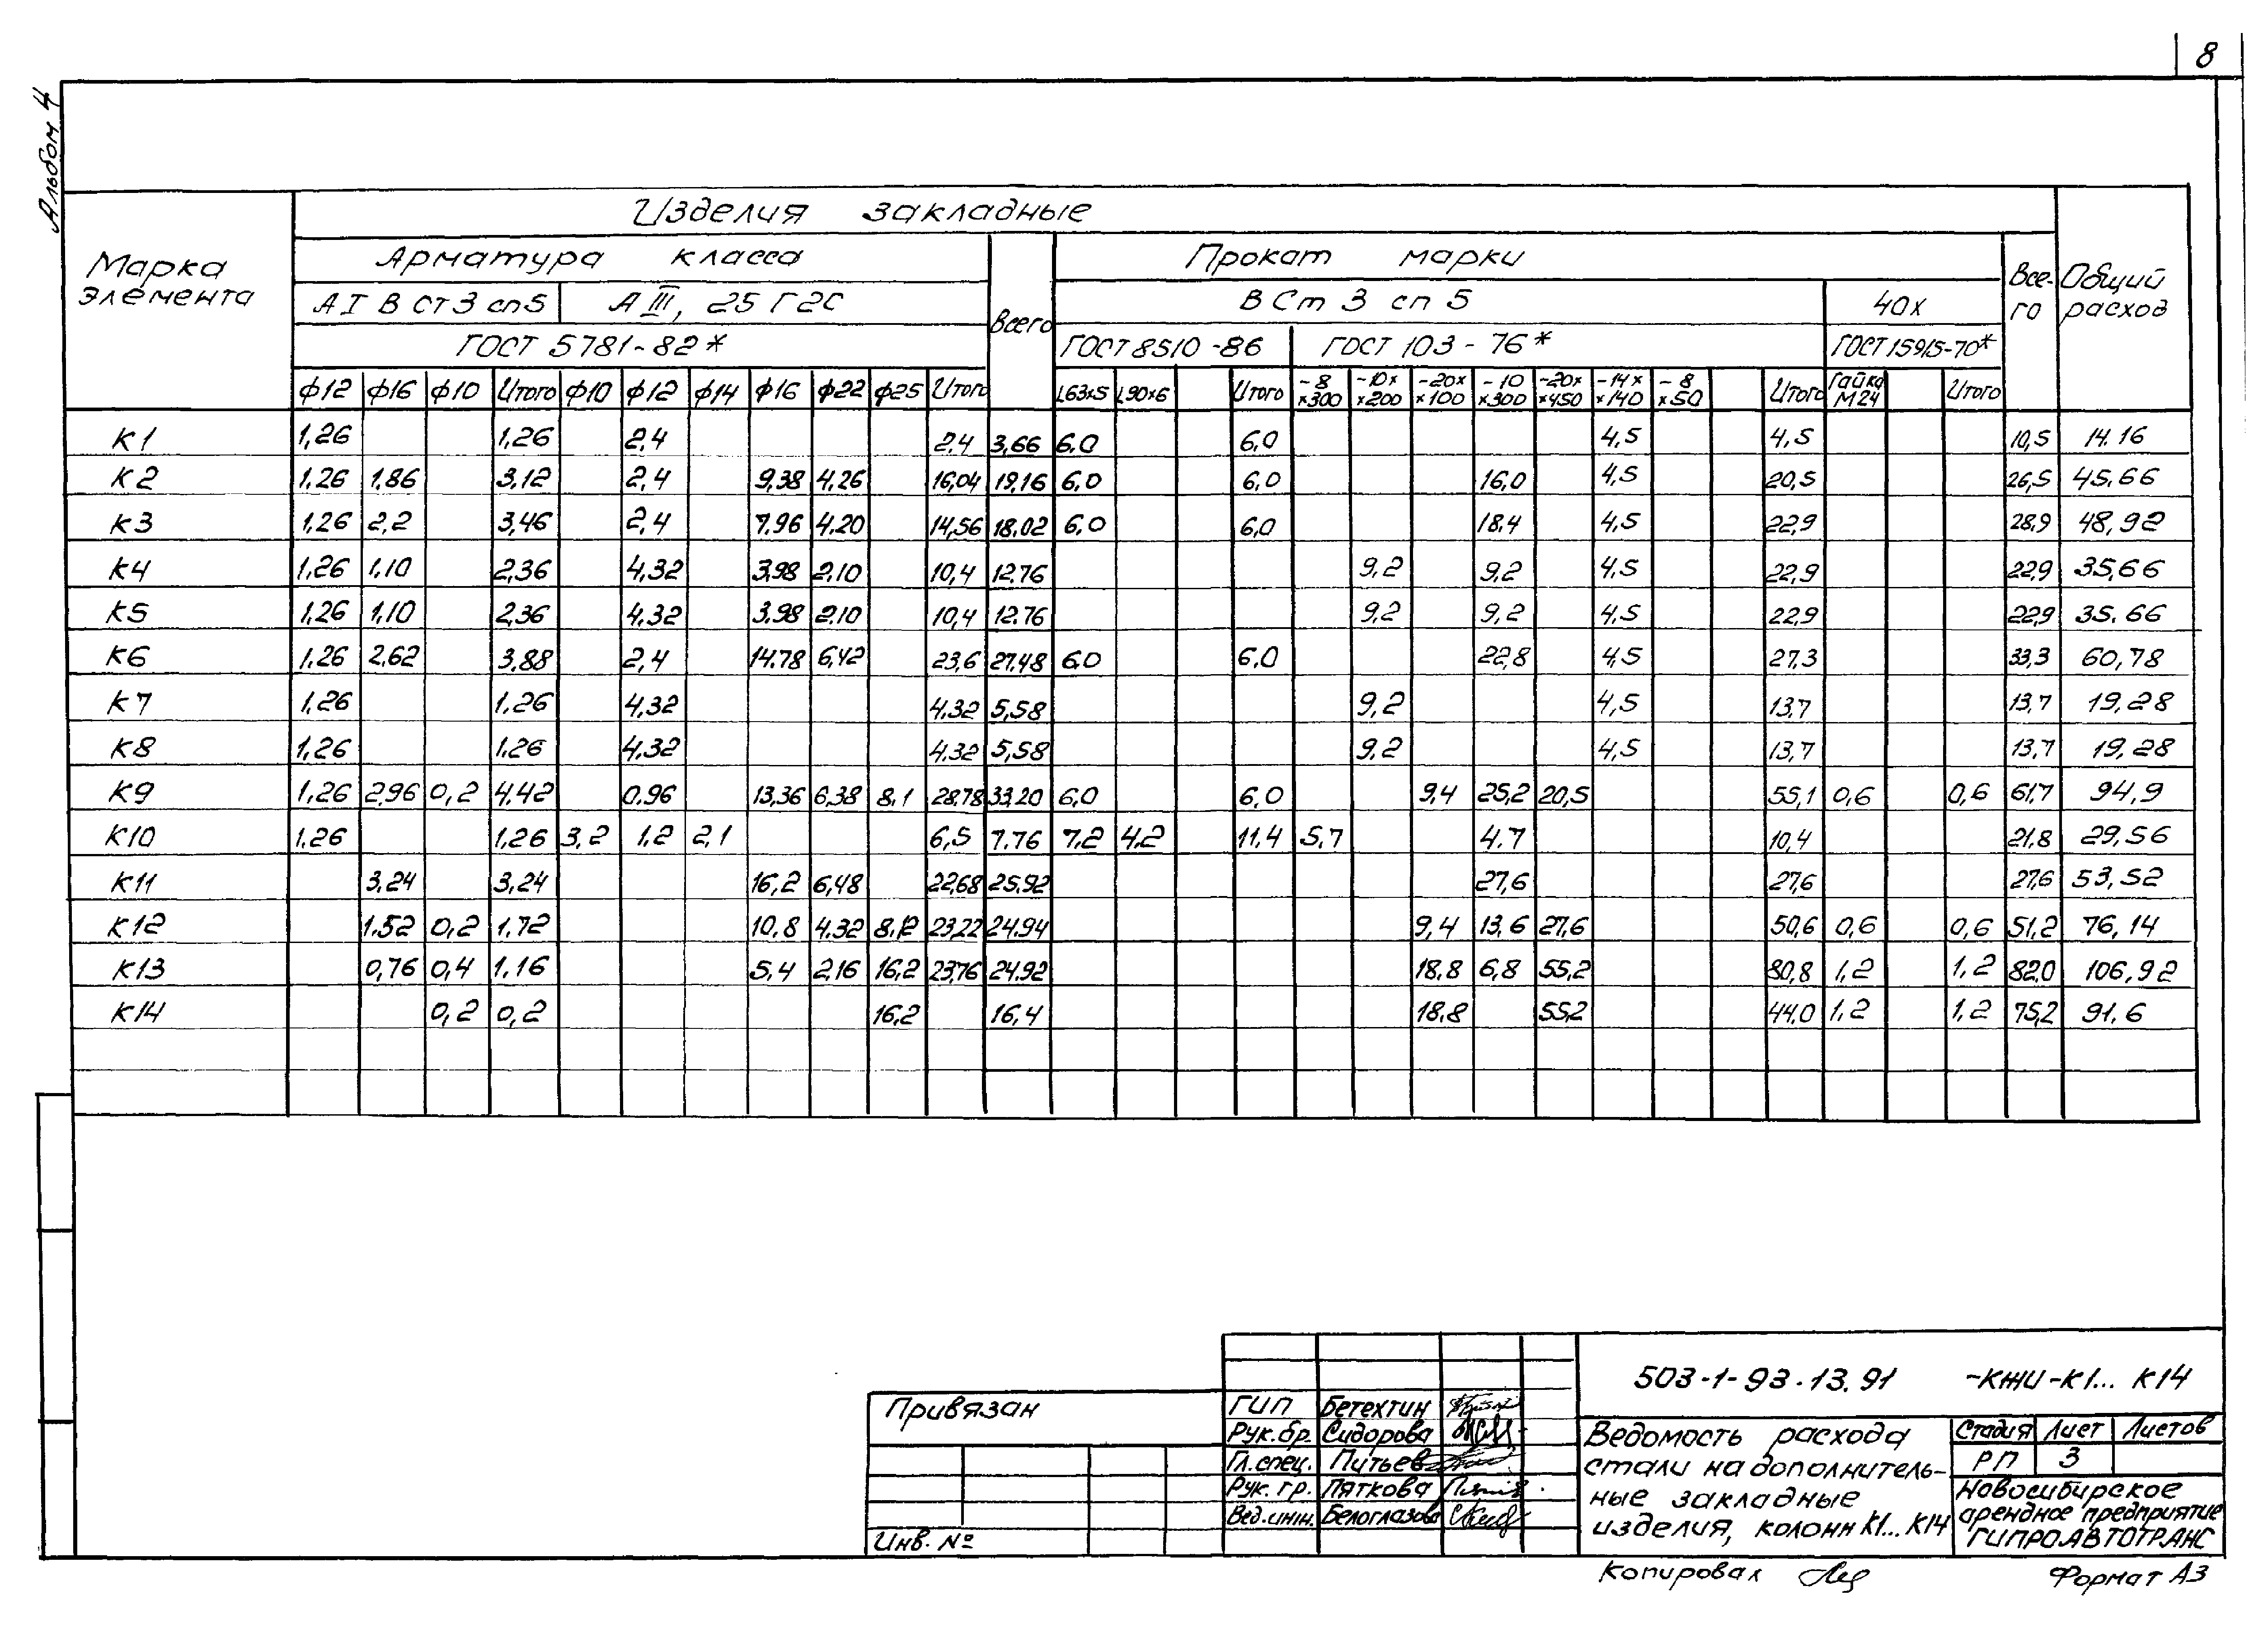 8
Альбом 4
Марка элемента
Изделия закладные
Общий расход
Арматура класса
Всего
Прокат марки
Все-го
А I В Ст 3 сп5
А III, 25 Г2С
В Ст 3 сп 5
40х
ГОСТ 5781-82*
ГОСТ 8510-86
ГОСТ 103-76*
ГОСТ 15915-70*
ф12 ф16 ф10 Итого ф10 ф12 ф14 ф16 ф22 ф25 Итого L63x5 L90x6 Итого -8x300 -10xx200 -20xx100 -10x300 -20xx450 -14xx140 -8x50 Итого Гайка М24 Итого
К1 1,26 1,26 2,4 2,4 3,66 6,0 6,0 4,5 4,5 10,5 14.16
К2 1,26 1,86 3,12 2,4 9,38 4,26 16,04 19,16 6,0 6,0 16,0 4,5 20,5 26,5 45,66
К3 1,26 2,2 3,46 2,4 7,96 4,20 14,56 18,02 6,0 6,0 18,4 4,5 22,9 28,9 48,92
К4 1,26 1,10 2,36 4,32 3,98 2,10 10,4 12,76 9,2 9,2 4,5 22,9 22,9 35,66
К5 1,26 1,10 2,36 4,32 3,98 2,10 10,4 12,76 9,2 9,2 4,5 22,9 22,9 35.66
К6 1,26 2,62 3,88 2,4 14,78 6,42 23,6 27,48 6,0 6,0 22,8 4,5 27,3 33,3 60,78
К7 1,26 1,26 4,32 4,32 5,58 9,2 4,5 13,7 13,7 19,28
К8 1,26 1,26 4,32 4,32 5,58 9,2 4,5 13,7 13,7 19,28
К9 1,26 2,96 0,2 4,42 0,96 13,36 6,38 8,1 28,78 33,20 6,0 6,0 9,4 25,2 20,5 55,1 0,6 0,6 61,7 94,9
К10 1,26 1,26 3,2 1,2 2,1 6,5 7,76 7,2 4,2 11,4 5,7 4,7 10,4 21,8 29,56
К11 3,24 3,24 16,2 6,48 22,68 25,92 27,6 27,6 27,6 53,52
К12 1,52 0,2 1,72 10,8 4,32 8,12 23,22 24,94 9,4 13,6 27,6 50,6 0,6 0,6 51,2 76,14
К13 0,76 0,4 1,16 5,4 2,16 16,2 23,76 24,92 18,8 6,8 55,2 80,8 1,2 1,2 82,0 106,92
К14 0,2 0,2 16,2 16,4 18,8 55,2 44,0 1,2 1,2 75,2 91,6
Привязан
Инв. №
ГИП Бетехтин
Рук.бр. Сидорова
Гл.спец. Питьев
Рук. гр. Пяткова
Вед.инж. Белоглазова
503-1-93.13.91 -КЖИ-К1... К14
Ведомость расхода
стали на дополнитель-
ные закладные
изделия, колонн К1...К14
Стадия Лист Листов
РП 3
Новосибирское
арендное предприятие
ГИПРОАВТОТРАНС
Копировал
Формат А3